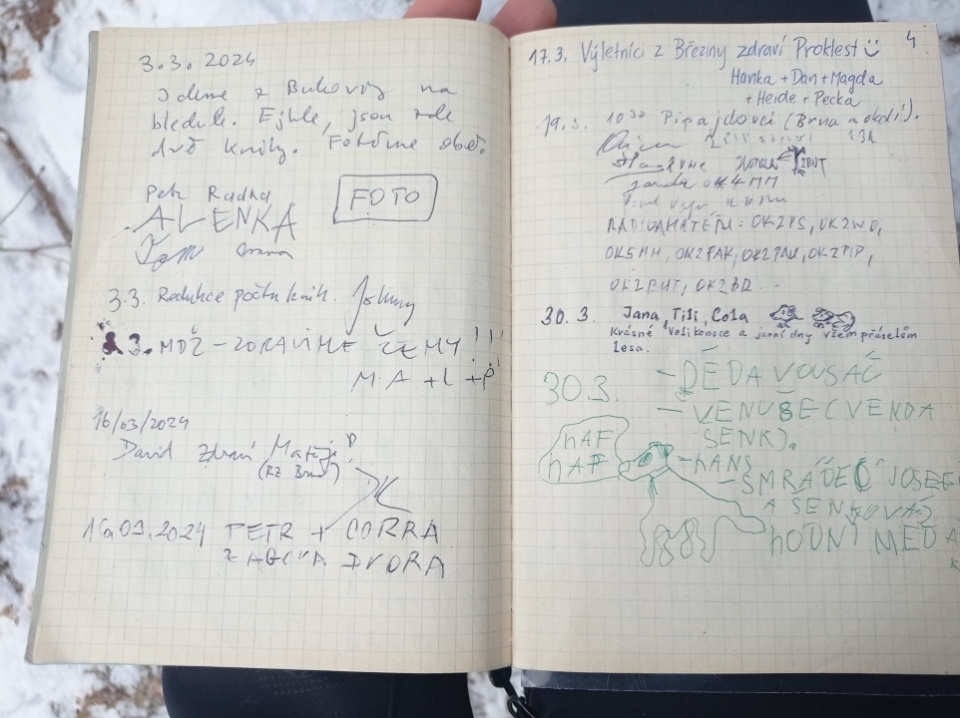 3.3.2024
Jdeme z Bukoviny na
bledule. Ejhle, jsou zde
dvě knihy. Fotíme obě.
Petr Radka
FOTO
ALENKA
3.3. Redukce počtu knih. Johny
8.3. MDŽ - ZDRAVÍME ŽENY!!!
M.A + L + P
16/03/2024
David zdraví Matěje
(RZ Brno)
16.03.2024 PETR + CORRA
Z DVORA
4
17.3. Výletníci z Březiny zdraví Proklest
Hanka + Dan + Magda
+ Heide + Pecka
19.3. 10³⁰ Pipajdovci (Brna a okolí).
13h
OK4MM
RADIOAMATÉŘI: OK2PS, OK2WO,
OK5MH, OK2PAK, OK2PAU, OK2PIP,
OK2BUT, OK2BR...
30.3. Jana, Tili, Cola
Krásné Velikonoce a jarní dny všem přátelům
lesa.
30.3. - DĚDA VOUSÁČ
- VENUŠE (VENDA
SENK).
HAF
HAF
- HANS
- SMRAĎEČ JOSEF
A SENKOVÁ
HODNÝ MEĎA